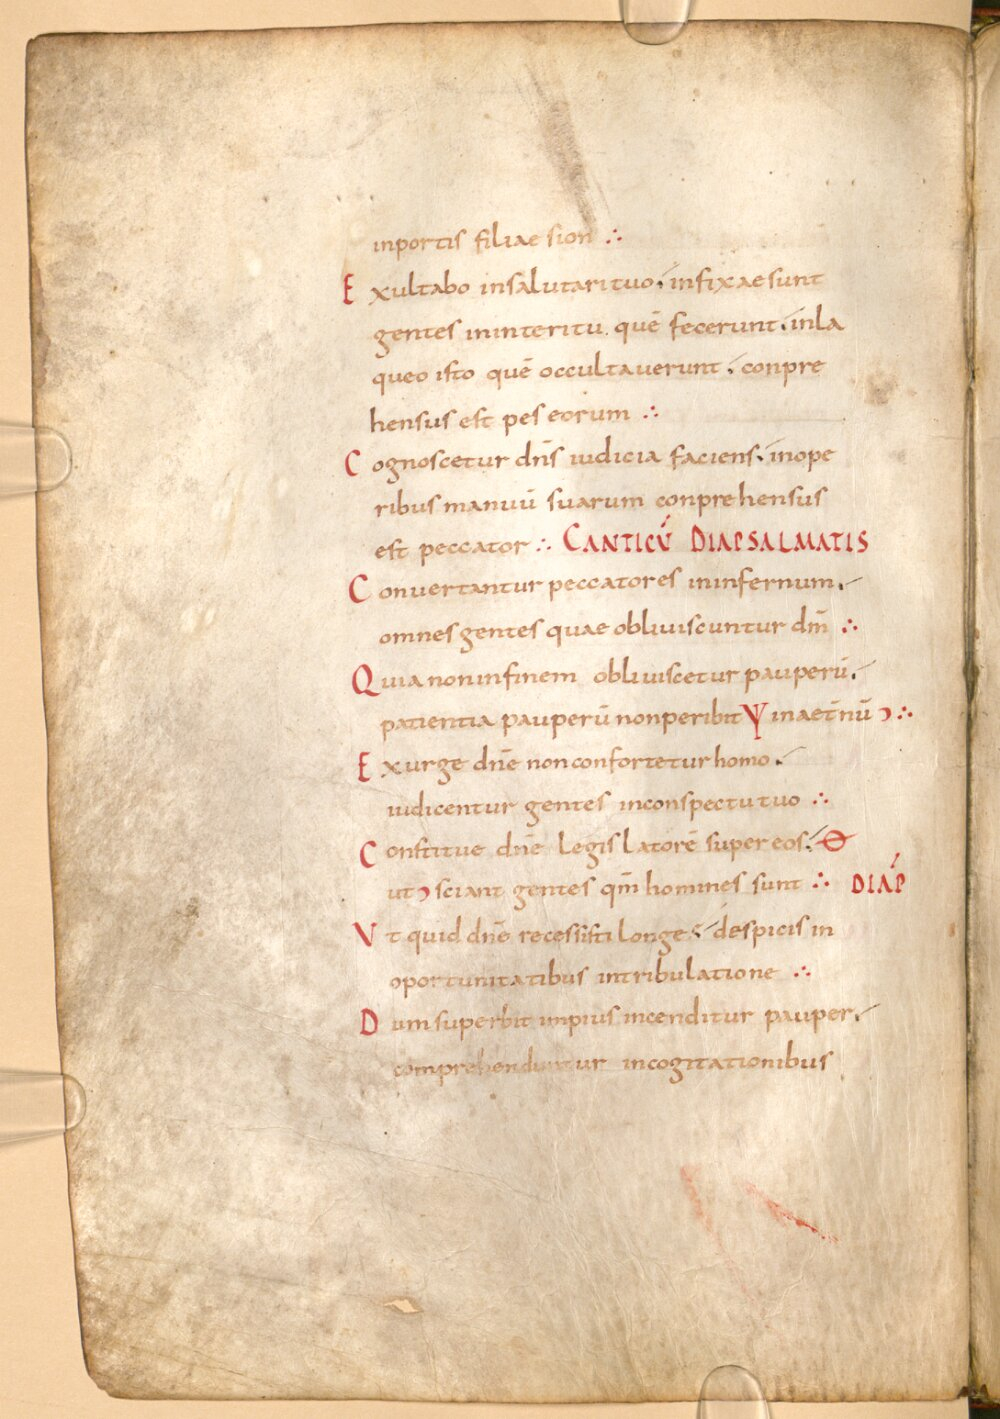 inportis filiae sion ∴
Exultabo insalutari tuo; infixae sunt
gentes ininteritu. quē fecerunt; inla
queo isto quē occultauerunt; conpre
hensus est pes eorum ∴
Cognoscetur dn̄s iudicia faciens; inope
ribus manuū suarum conprehensus
est peccator ∴ CANTICŪ DIAPSALMATIS
Conuertantur peccatores ininfernum;
omnes gentes quae obliuiscuntur dm̄ ∴
Quia noninfinem obliuiscetur pauperū;
patientia pauperū nonperibit Ψ inaet̄nū ϶ ∴
Exurge dn̄e nonconfortetur homo;
iudicentur gentes inconspectu tuo ∴
Constitue dn̄e legislatorē super eos;
ut϶ sciant gentes qm̄ homines sunt ∴ DIAP
Vt quid dn̄e recessisti longe; despicis in
oportunitatibus intribulatione ∴
Dum superbit impius incenditur pauper;
comprehenduntur incogitationibus